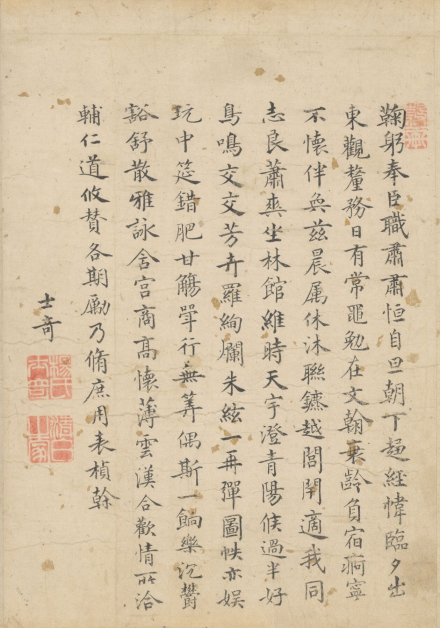 鞠躬奉臣職肅肅恒自旦朝下趨經幃臨夕出
東觀釐務日有常黽勉在文翰衰齡負宿痾寧
不懷伴奐茲晨屬休沐聯鑣越閭閈適我同
志良蕭爽坐林館維時天宇澄青陽候過半好
鳥鳴交交芳卉羅絢爛朱絃一再彈圖帙亦娛
玩中筵錯肥甘觴斝行無筭偶斯一餉樂沉鬱
豁舒散雅詠含宮商高懷薄雲漢合歡情所洽
輔仁道攸贊各期勵乃脩庶用表楨榦
士奇
楊氏